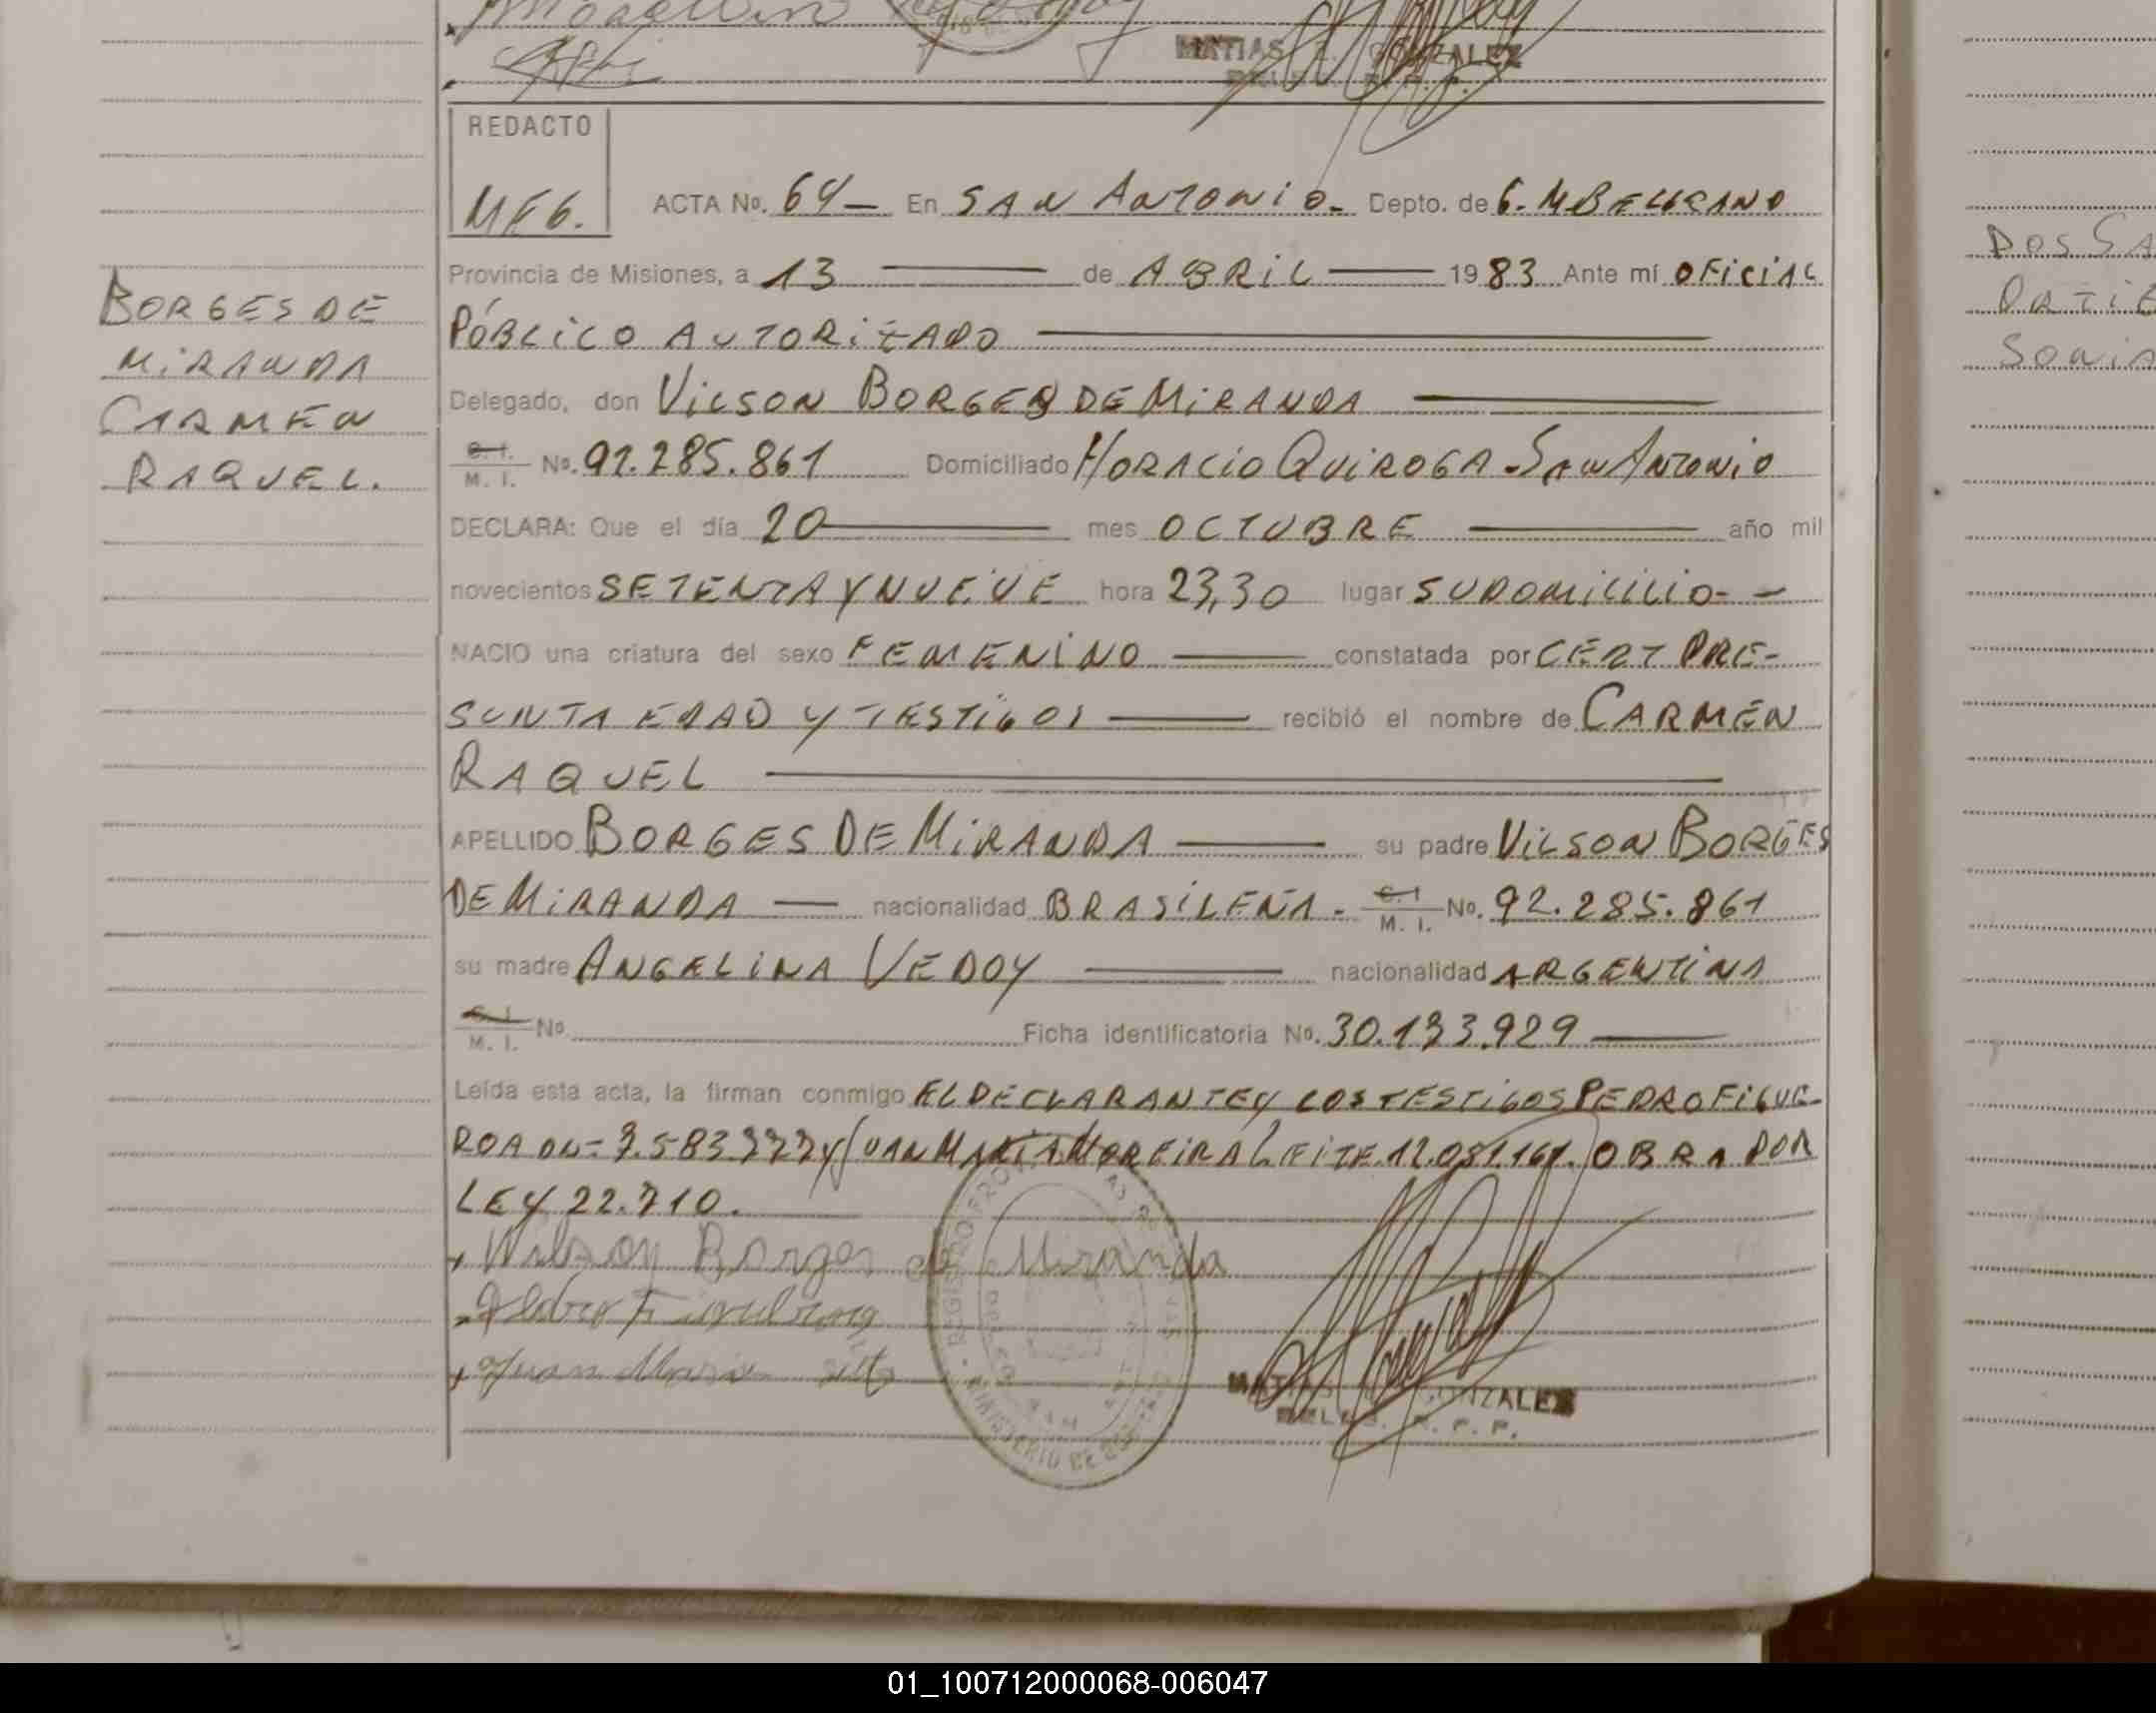 MATIAS E. GONZALEZ
REDACTO
MFG.
ACTA No. 64 — En SAN ANTONIO - Depto. de G. M BELGRANO
Provincia de Misiones, a 13 — de ABRIL — 1983 Ante mí OFICIAL
PÚBLICO AUTORIZADO —
Delegado, don VILSON BORGES DE MIRANDA —
C. I. / M. I. No. 92.285.861 Domiciliado HORACIO QUIROGA - SAN ANTONIO
DECLARA: Que el día 20 — mes OCTUBRE — año mil
novecientos SETENTA Y NUEVE hora 23,30 lugar SU DOMICILIO - —
NACIO una criatura del sexo FEMENINO — constatada por CERT PRE-
SUNTA EDAD Y TESTIGOS — recibió el nombre de CARMEN
RAQUEL —
APELLIDO BORGES DE MIRANDA — su padre VILSON BORGES
DE MIRANDA — nacionalidad BRASILEÑA - C. I / M. I. No. 92.285.861
su madre ANGELINA VEDOY — nacionalidad ARGENTINA
C. I / M. I. No. Ficha identificatoria No. 30.133.929 —
Leída esta acta, la firman conmigo EL DECLARANTE Y LOS TESTIGOS PEDRO FIGUE-
ROA DN= 7.583.777 Y JUAN MARIA MOREIRA LEITE 12.051.161. OBRA POR
LEY 22.710.
Wilson Borges de Miranda
Pedro Figueroa
Juan Maria
MATIAS GONZALEZ
DELEG. R. P. P.
BORGES DE
MIRANDA
CARMEN
RAQUEL.
DOS SA
SONIA
01_100712000068-006047